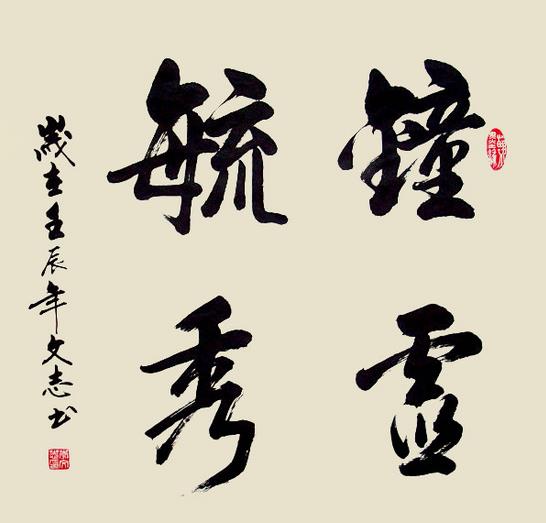 鐘靈
毓秀
歲在壬辰年文志书